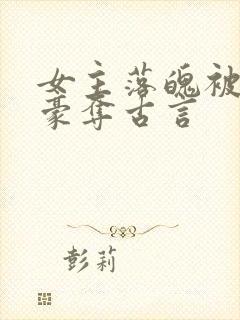 女主落魄被
豪夺古言
彭莉